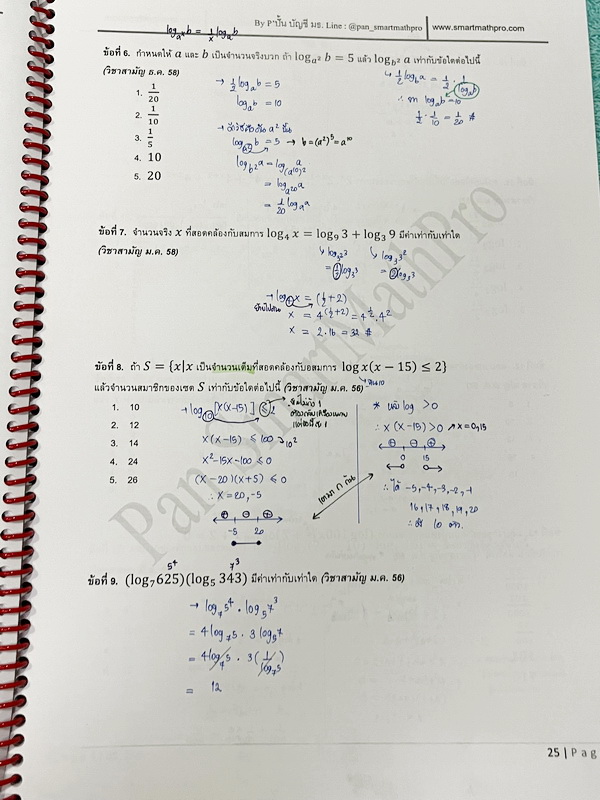 log_{a^x} b = 1/x log_a b
By P'ปั้น บัญชี มธ. Line : @pan_smartmathpro | www.smartmathpro.com
ข้อที่ 6. กำหนดให้ a และ b เป็นจำนวนจริงบวก ถ้า log_{a²} b = 5 แล้ว log_{b²} a เท่ากับข้อใดต่อไปนี้
(วิชาสามัญ ธ.ค. 58)
1. 1/20
2. 1/10
3. 1/5
4. 10
5. 20
→ 1/2 log_a b = 5
log_a b = 10
log_{a²} b = 5 → b = (a²)^5 = a^{10}
log_{b²} a = log_{(a^{10})²} a
= log_{a^{20}} a
= 1/20 log_a a
↳ 1/2 log_b a = 1/2 · 1/log_a b
∴ จาก log_a b = 10
1/2 · 1/10 = 1/20 #
ข้อที่ 7. จำนวนจริง x ที่สอดคล้องกับสมการ log₄ x = log₉ 3 + log₃ 9 มีค่าเท่ากับเท่าใด
(วิชาสามัญ ม.ค. 58)
↳ log_{3²} 3 ↳ log₃ 3²
= 1/2 log₃ 3 = 2 log₃ 3
→ log₄ x = (1/2 + 2)
x = 4^{(1/2+2)} = 4^{1/2} · 4²
x = 2 · 16 = 32 #
ข้อที่ 8. ถ้า S = {x|x เป็นจำนวนเต็มที่สอดคล้องกับอสมการ log x(x − 15) ≤ 2}
แล้วจำนวนสมาชิกของเซต S เท่ากับข้อใดต่อไปนี้ (วิชาสามัญ ม.ค. 56)
↳ ฐาน 10
1. 10
2. 12
3. 14
4. 24
5. 26
→ log₁₀ [x(x-15)] ≤ 2
x(x-15) ≤ 100 → 10²
x² - 15x - 100 ≤ 0
(x - 20)(x + 5) ≤ 0
∴ x = 20, -5
+ - +
-5 20
* หลัง log > 0
∴ x (x-15) > 0 ↗ x = 0, 15
+ - +
0 15
∴ ได้ -5, -4, -3, -2, -1
16, 17, 18, 19, 20
10 ตัว
Pan SmartMathPro
5⁴ 7³
ข้อที่ 9. (log₇ 625)(log₅ 343) มีค่าเท่ากับเท่าใด (วิชาสามัญ ม.ค. 56)
→ log₇ 5⁴ · log₅ 7³
= 4 log₇ 5 · 3 log₅ 7
= 4 log₇ 5 · 3 (1/log₇ 5)
= 12
25 | P a g